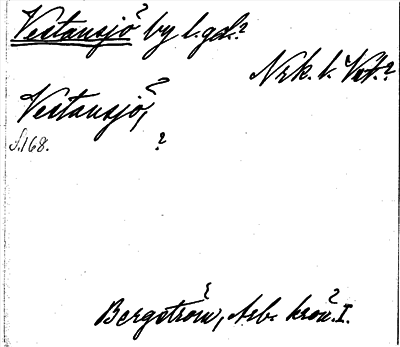 Vestansjö? by l. gd.?
Nrk. l. Vst.?
Vestansjö,?
S. 168. ?
Bergström, Arb. krön. I.